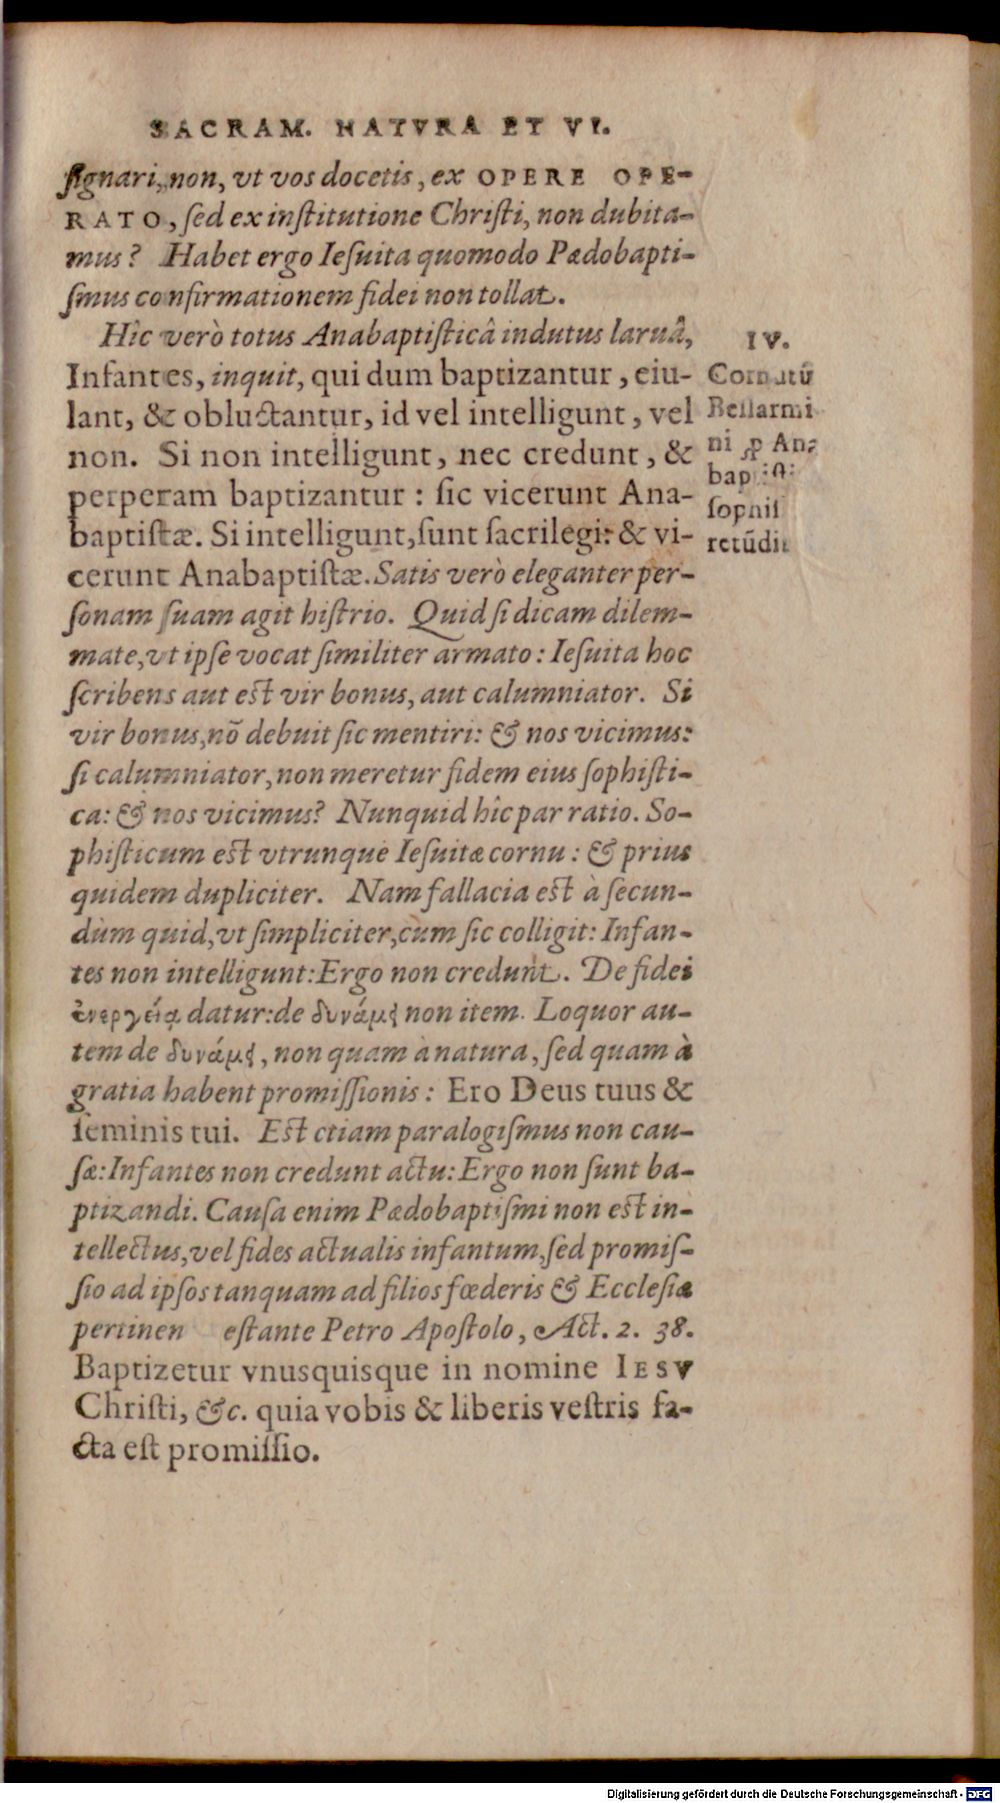 SACRAM. NATVRA ET VI.
ſignari, non, vt vos docetis, ex OPERE OPE-
RATO, ſed ex inſtitutione Chriſti, non dubita-
mus? Habet ergo Ieſuita quomodo Pædobapti-
ſmus confirmationem fidei non tollat.
Hîc verò totus Anabaptiſticâ indutus laruâ,
Infantes, inquit, qui dum baptizantur, eiu-
lant, & obluctantur, id vel intelligunt, vel
non. Si non intelligunt, nec credunt, &
perperam baptizantur: ſic vicerunt Ana-
baptiſtæ. Si intelligunt, ſunt ſacrilegi: & vi-
cerunt Anabaptiſtæ. Satis verò eleganter per-
ſonam ſuam agit hiſtrio. Quid ſi dicam dilem-
mate, vt ipſe vocat ſimiliter armato: Ieſuita hoc
ſcribens aut eſt vir bonus, aut calumniator. Si
vir bonus, nõ debuit ſic mentiri: & nos vicimus:
ſi calumniator, non meretur fidem eius ſophiſti-
ca: & nos vicimus? Nunquid hîc par ratio. So-
phiſticum eſt vtrunque Ieſuitæ cornu: & prius
quidem dupliciter. Nam fallacia eſt à ſecun-
dùm quid, vt ſimpliciter, cùm ſic colligit: Infan-
tes non intelligunt: Ergo non credunt. De fidei
ἐνεργείᾳ datur: de δυνάμει non item. Loquor au-
tem de δυνάμει, non quam à natura, ſed quam à
gratia habent promiſſionis: Ero Deus tuus &
ſeminis tui. Eſt etiam paralogiſmus non cau-
ſæ: Infantes non credunt actu: Ergo non ſunt ba-
ptizandi. Cauſa enim Pædobaptiſmi non eſt in-
tellectus, vel fides actualis infantum, ſed promiſ-
ſio ad ipſos tanquam ad filios fœderis & Eccleſiæ
pertinen eſtante Petro Apoſtolo, Act. 2. 38.
Baptizetur vnusquisque in nomine IESV
Chriſti, &c. quia vobis & liberis veſtris fa-
cta eſt promiſſio.
IV.
Cornutũ
Bellarmi
ni ꝓ Ana
baptiſt
ſophiſ
retũdit